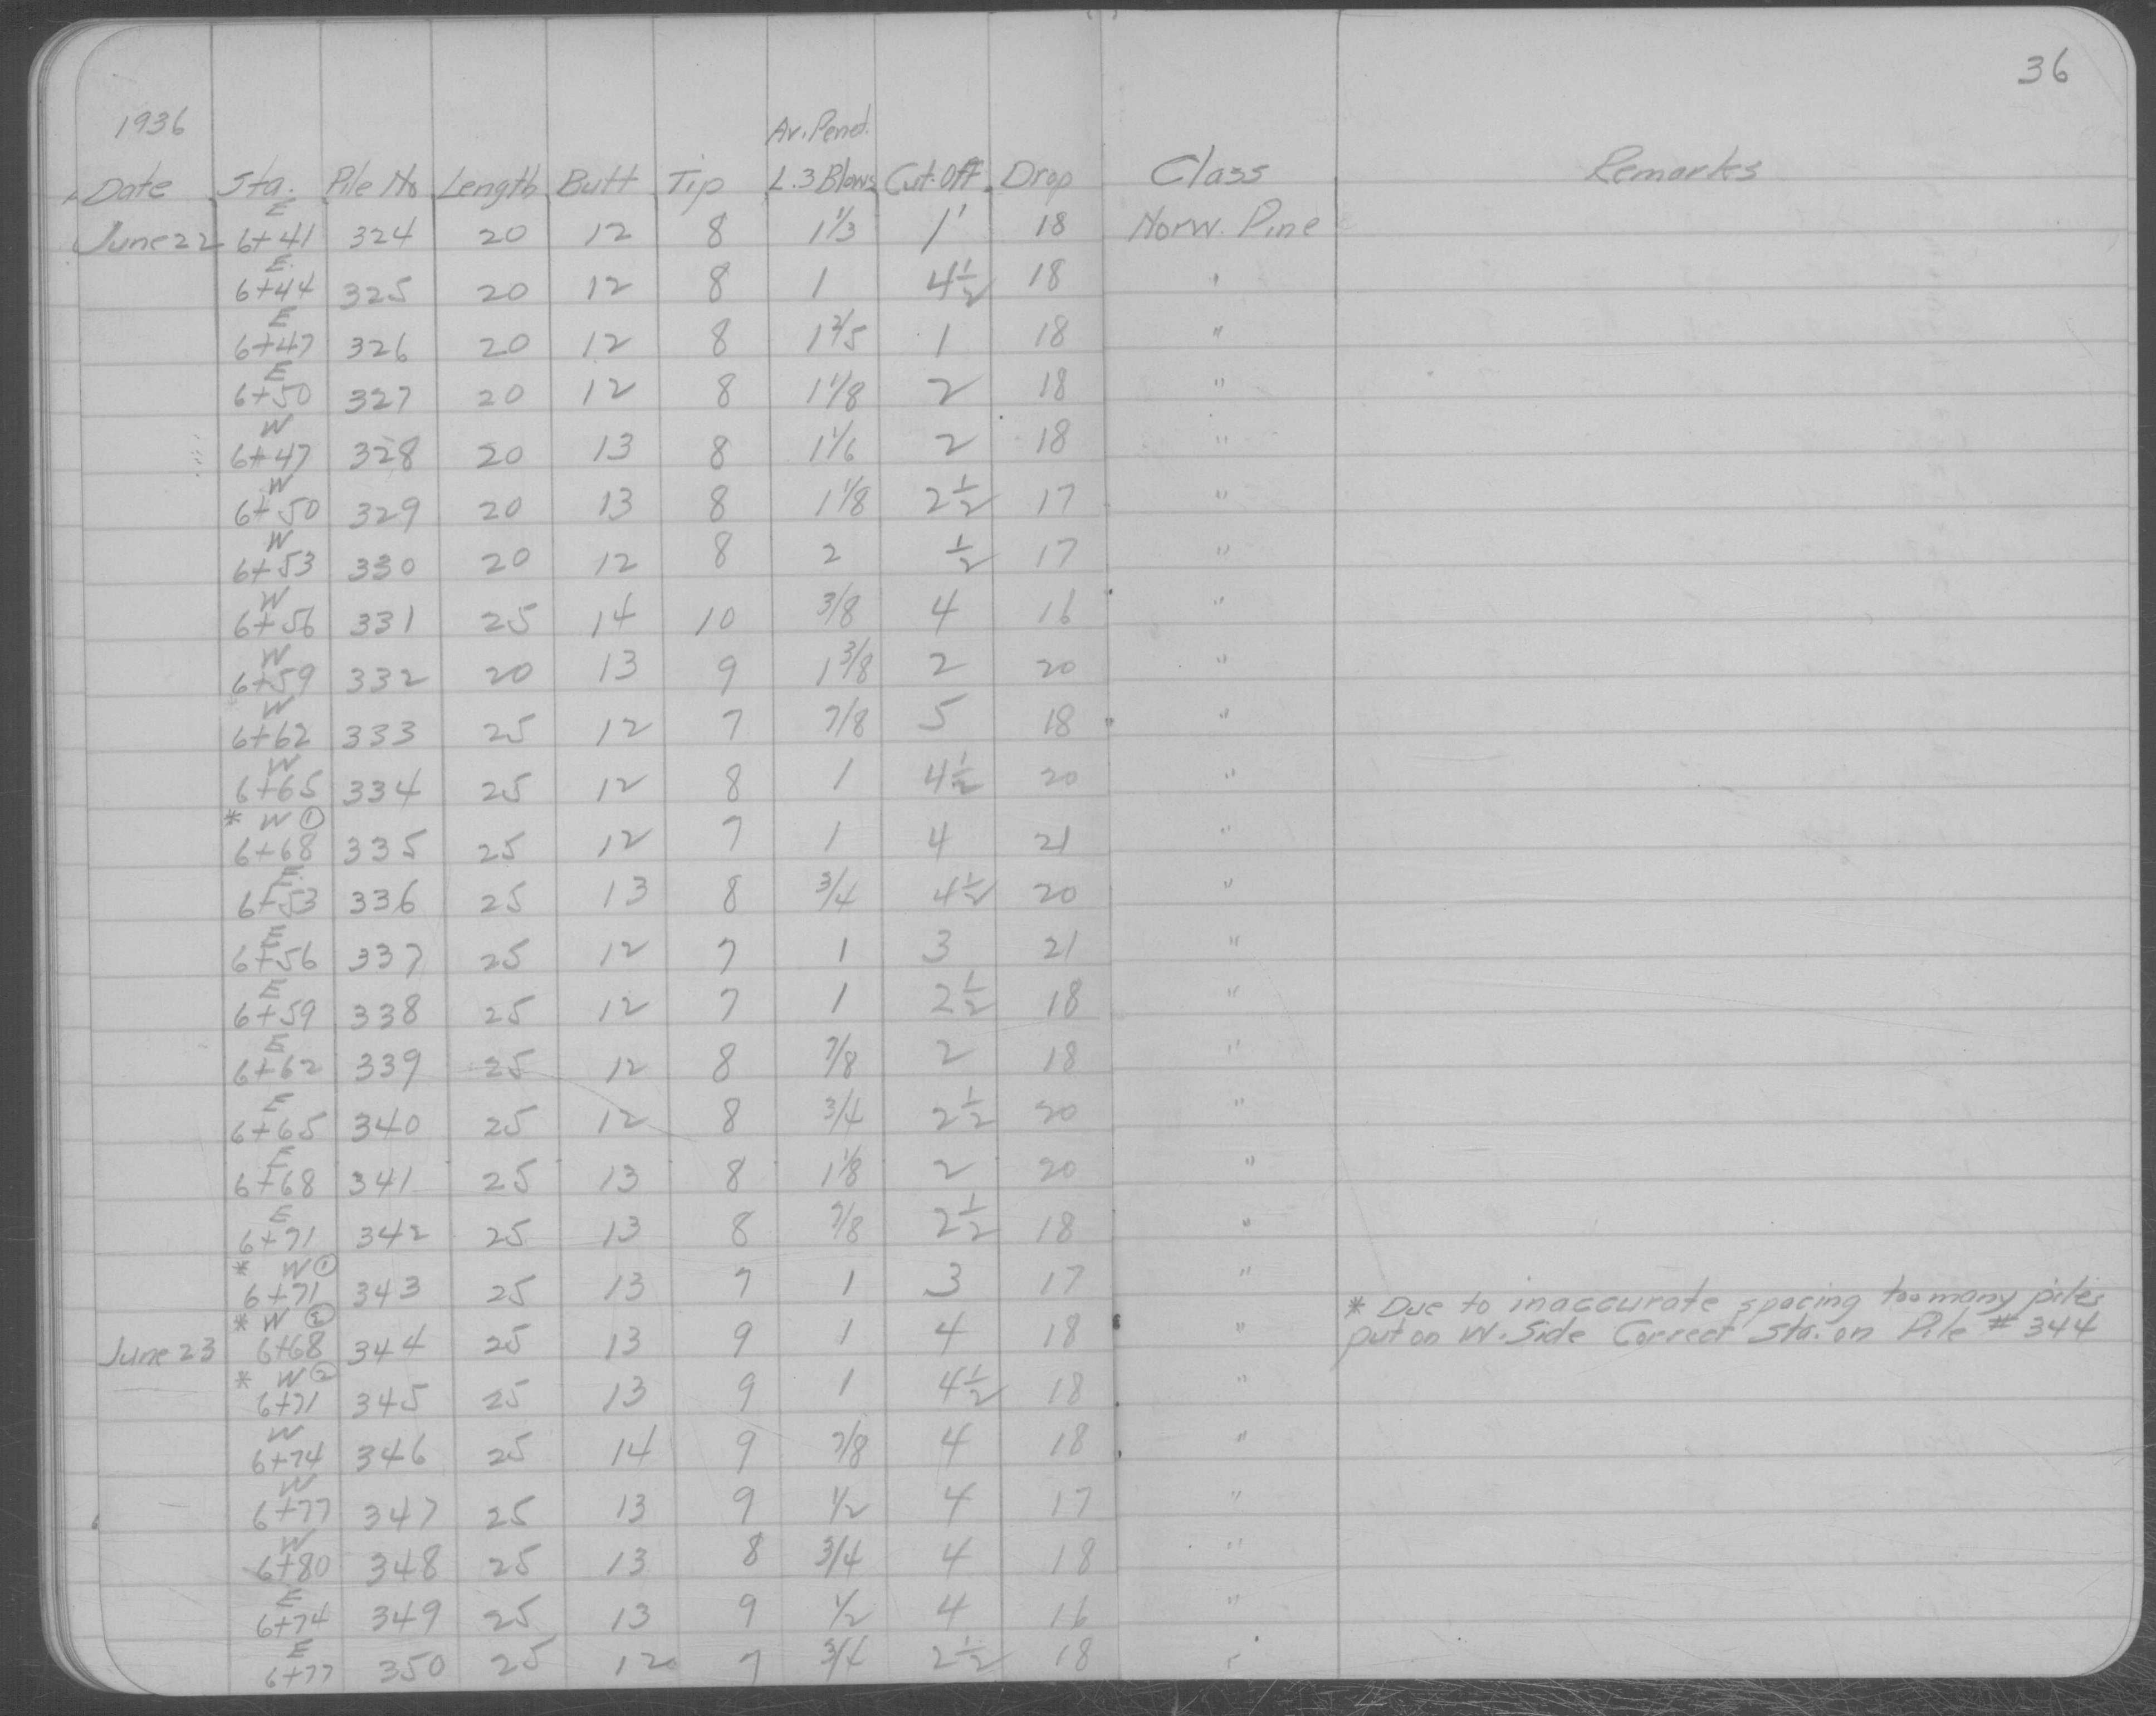 36
1936
Av. Pend.
Date Sta. Pile No Length Butt Tip L. 3 Blows Cut. Off Drop Class Remarks
E
June 22 6+41 324 20 12 8 1 1/3 1' 18 Norw. Pine
E.
6+44 325 20 12 8 1 4 1/2 18 "
E
6+47 326 20 12 8 1 2/5 1 18 "
E
6+50 327 20 12 8 1 1/8 2 18 "
W
6+47 328 20 13 8 1 1/6 2 18 "
W
6+50 329 20 13 8 1 1/8 2 1/2 17 "
W
6+53 330 20 12 8 2 1/2 17 "
W
6+56 331 25 14 10 3/8 4 16 "
W
6+59 332 20 13 9 1 3/8 2 20 "
W
6+62 333 25 12 7 7/8 5 18 "
W
6+65 334 25 12 8 1 4 1/2 20 "
* W ①
6+68 335 25 12 7 1 4 21 "
E
6+53 336 25 13 8 3/4 4 1/2 20 "
E
6+56 337 25 12 7 1 3 21 "
E
6+59 338 25 12 7 1 2 1/2 18 "
E
6+62 339 25 12 8 7/8 2 18 "
E
6+65 340 25 12 8 3/4 2 1/2 20 "
E
6+68 341 25 13 8 1 1/8 2 20 "
E
6+71 342 25 13 8 7/8 2 1/2 18 "
* W ①
6+71 343 25 13 7 1 3 17 "
* Due to inaccurate spacing too many piles
* W ②
June 23 6+68 344 25 13 9 1 4 18 " put on W. Side Correct Sta. on Pile # 344
* W ②
6+71 345 25 13 9 1 4 1/2 18 "
W
6+74 346 25 14 9 7/8 4 18 "
W
6+77 347 25 13 9 1/2 4 17 "
W
6+80 348 25 13 8 3/4 4 18 "
E
6+74 349 25 13 9 1/2 4 16 "
E
6+77 350 25 12 7 3/4 2 1/2 18 "